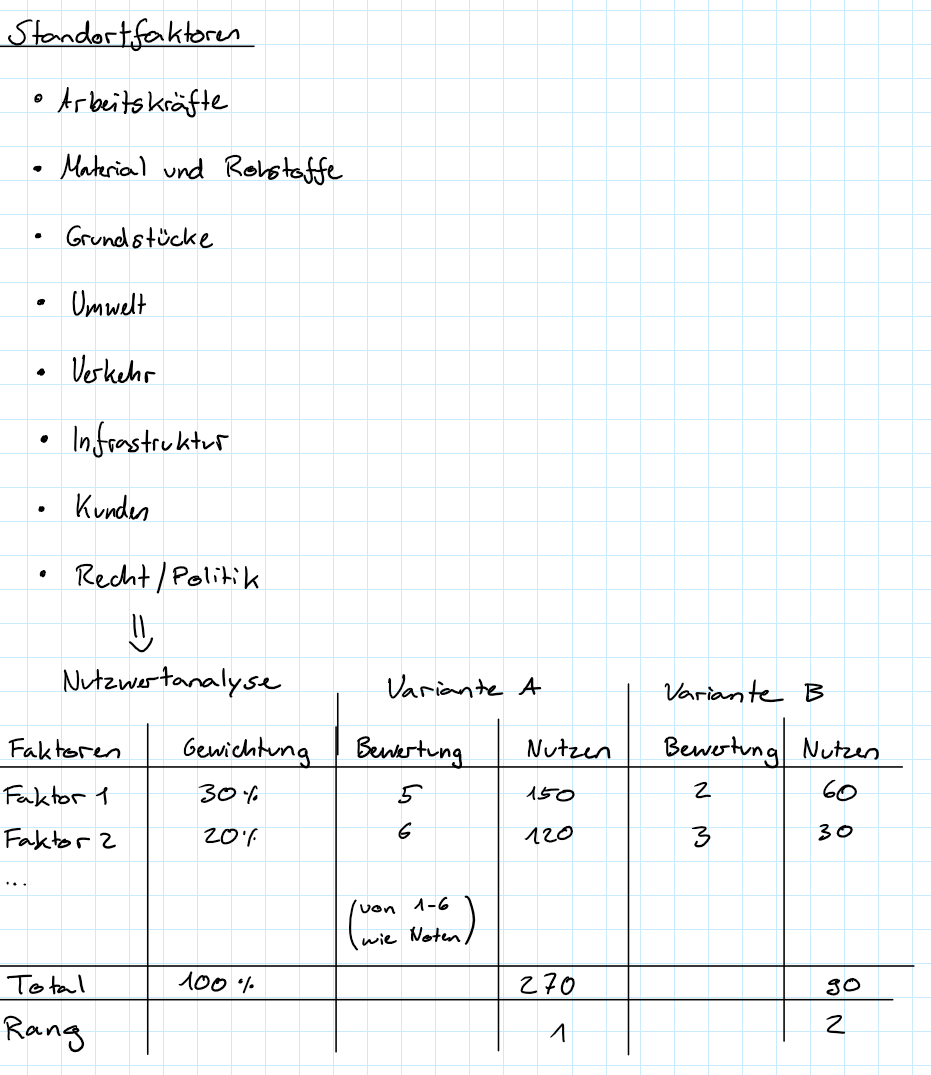 Standortfaktoren
• Arbeitskräfte
• Material und Rohstoffe
• Grundstücke
• Umwelt
• Verkehr
• Infrastruktur
• Kunden
• Recht/Politik
⇓
Nutzwertanalyse Variante A Variante B
Faktoren Gewichtung Bewertung Nutzen Bewertung Nutzen
Faktor 1 30% 5 150 2 60
Faktor 2 20% 6 120 3 30
...
(von 1-6
wie Noten)
Total 100% 270 90
Rang 1 2